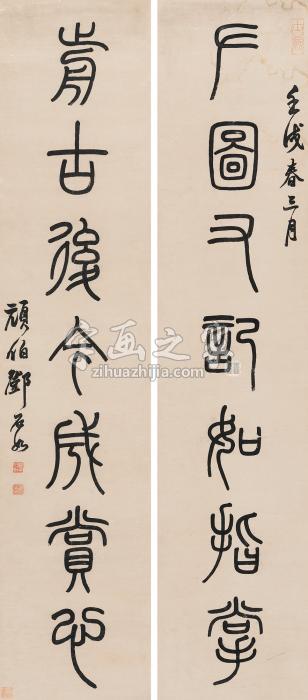 壬戌春三月
圖又記如指掌
前古後今成賞心
頑伯鄧石如
字画之家
zihuazhijia.com